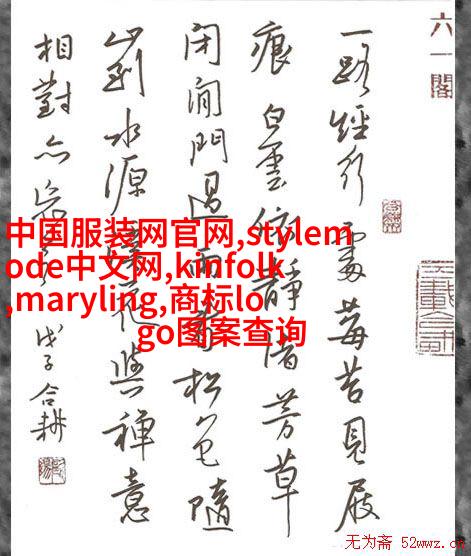 六一閣
一路經行處莓苔見屐
痕白雲依靜渚芳草
閉閒門過雨看松色隨
山到水源溪花與禪意
相對亦忘言
戊子合耕
中国服装网官网,stylem
ode中文网,kinfolk
,maryling,商标lo
go图案查询
无为斋 52wwz.c